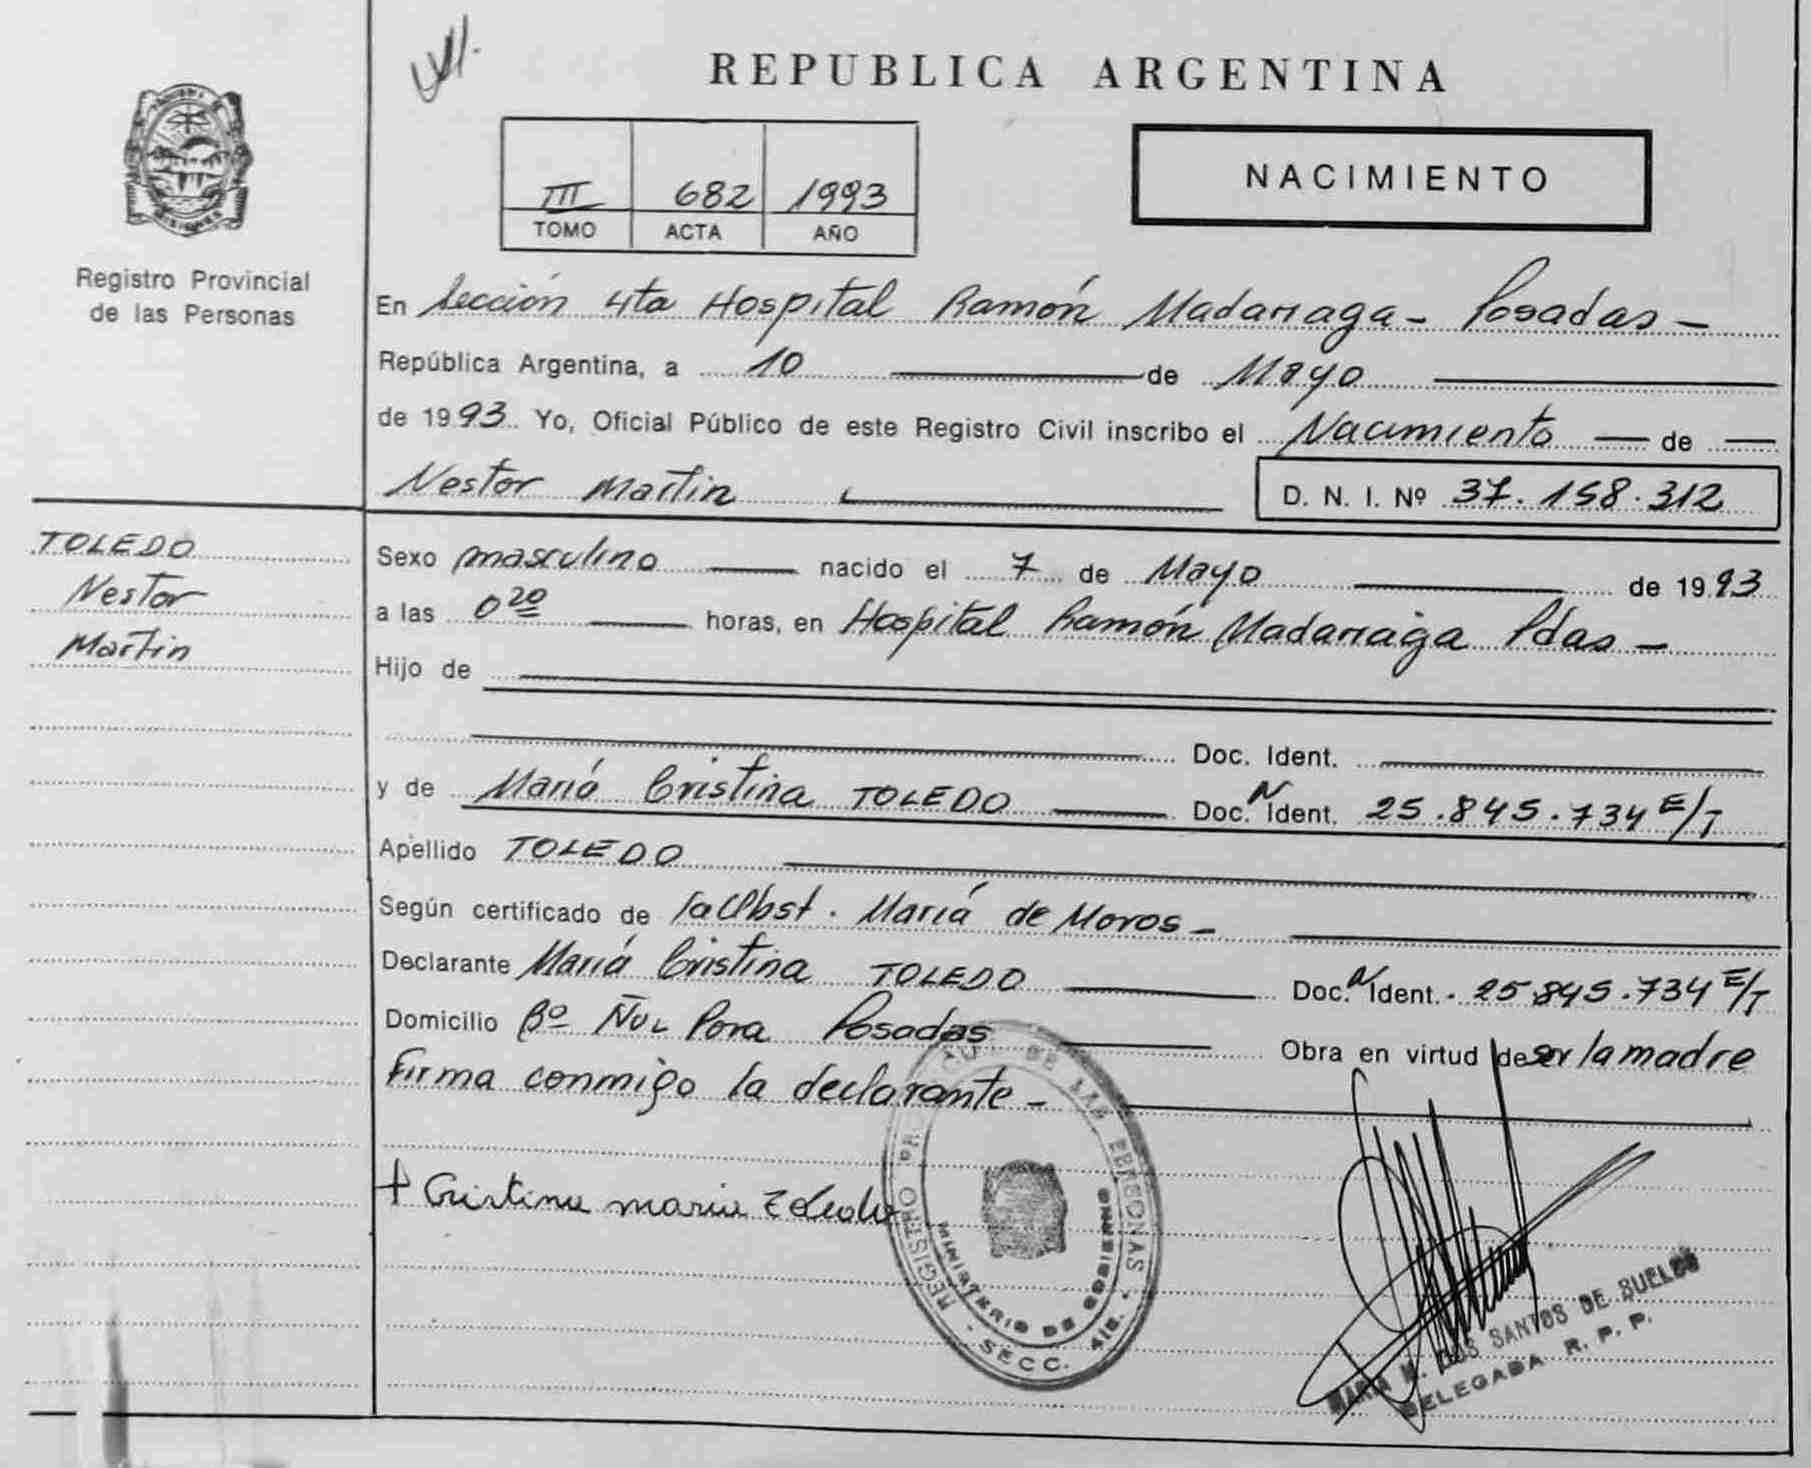 REPUBLICA ARGENTINA
NACIMIENTO
III 682 1993
TOMO ACTA AÑO
Registro Provincial
de las Personas
En Sección 4ta Hospital Ramón Madariaga - Posadas -
República Argentina, a 10 de Mayo
de 1993 Yo, Oficial Público de este Registro Civil inscribo el Nacimiento de
Nestor Martin
D. N. I. Nº 37.158.312
TOLEDO
Nestor
Martin
Sexo masculino nacido el 7 de Mayo de 1993
a las 0 20 horas, en Hospital Ramón Madariaga Pdas -
Hijo de
Doc. Ident.
y de María Cristina TOLEDO Doc. N Ident. 25.845.734 E/T
Apellido TOLEDO
Según certificado de la Obst. María de Moros -
Declarante María Cristina TOLEDO Doc. N Ident. 25.845.734 E/T
Domicilio Bº Ñu Pora Posadas Obra en virtud de ser la madre
Firma conmigo la declarante -
+ Cristina maria Toledo
REGISTRO DE LAS PERSONAS
MINISTERIO DE GOBIERNO
SECC. 4ta.
MARIA DOS SANTOS DE
DELEGADA R. P. P.